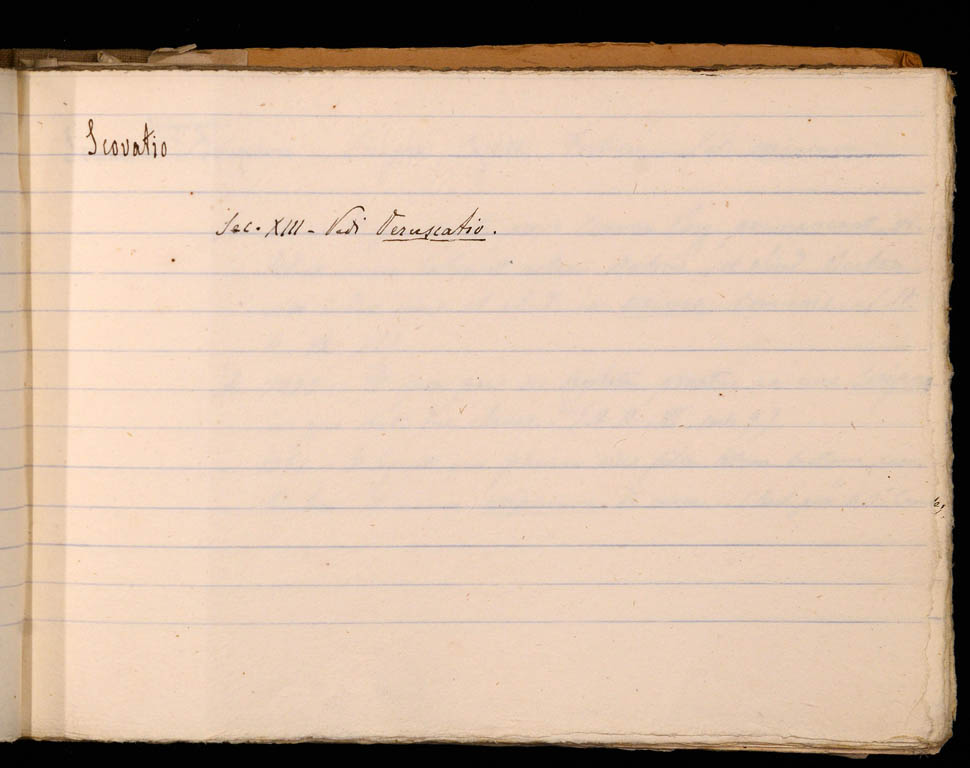 Scovatio
Sec. XIII - Vedi Veruscatio.